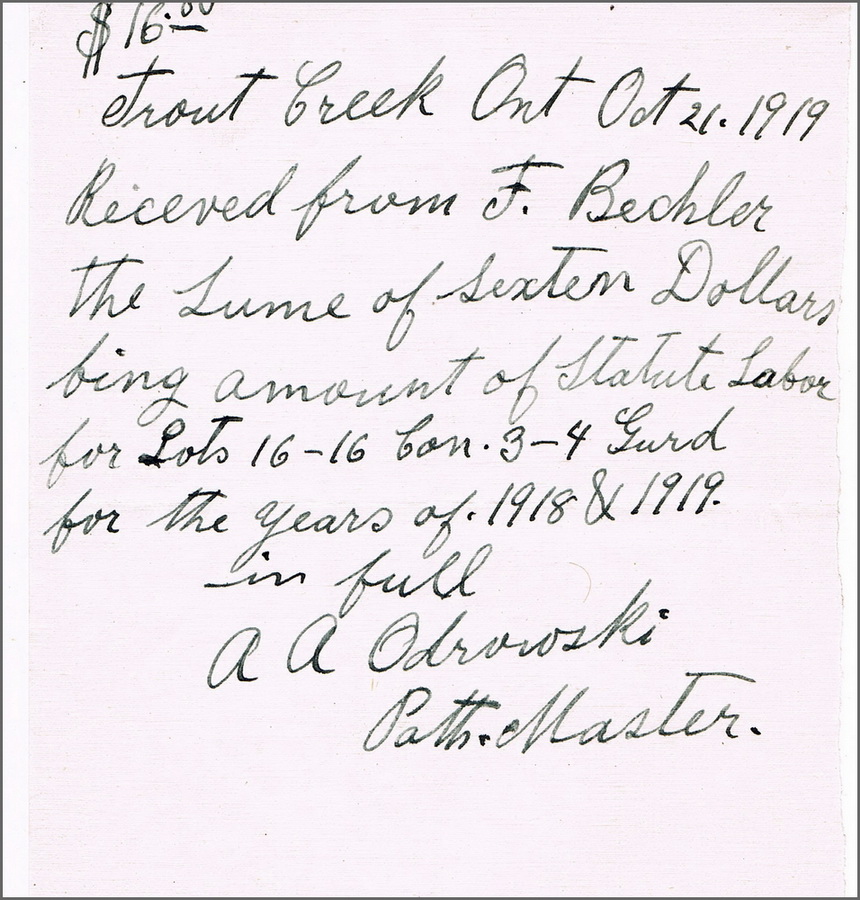 $16.00
Trout Creek Ont Oct 21. 1919
Receved from F. Bechler
the Sume of Sexten Dollars
bing amount of Statute Labor
for Lots 16-16 Con. 3-4 Gurd
for the years of. 1918 & 1919.
in full
A A Odrowski
Path. Master.